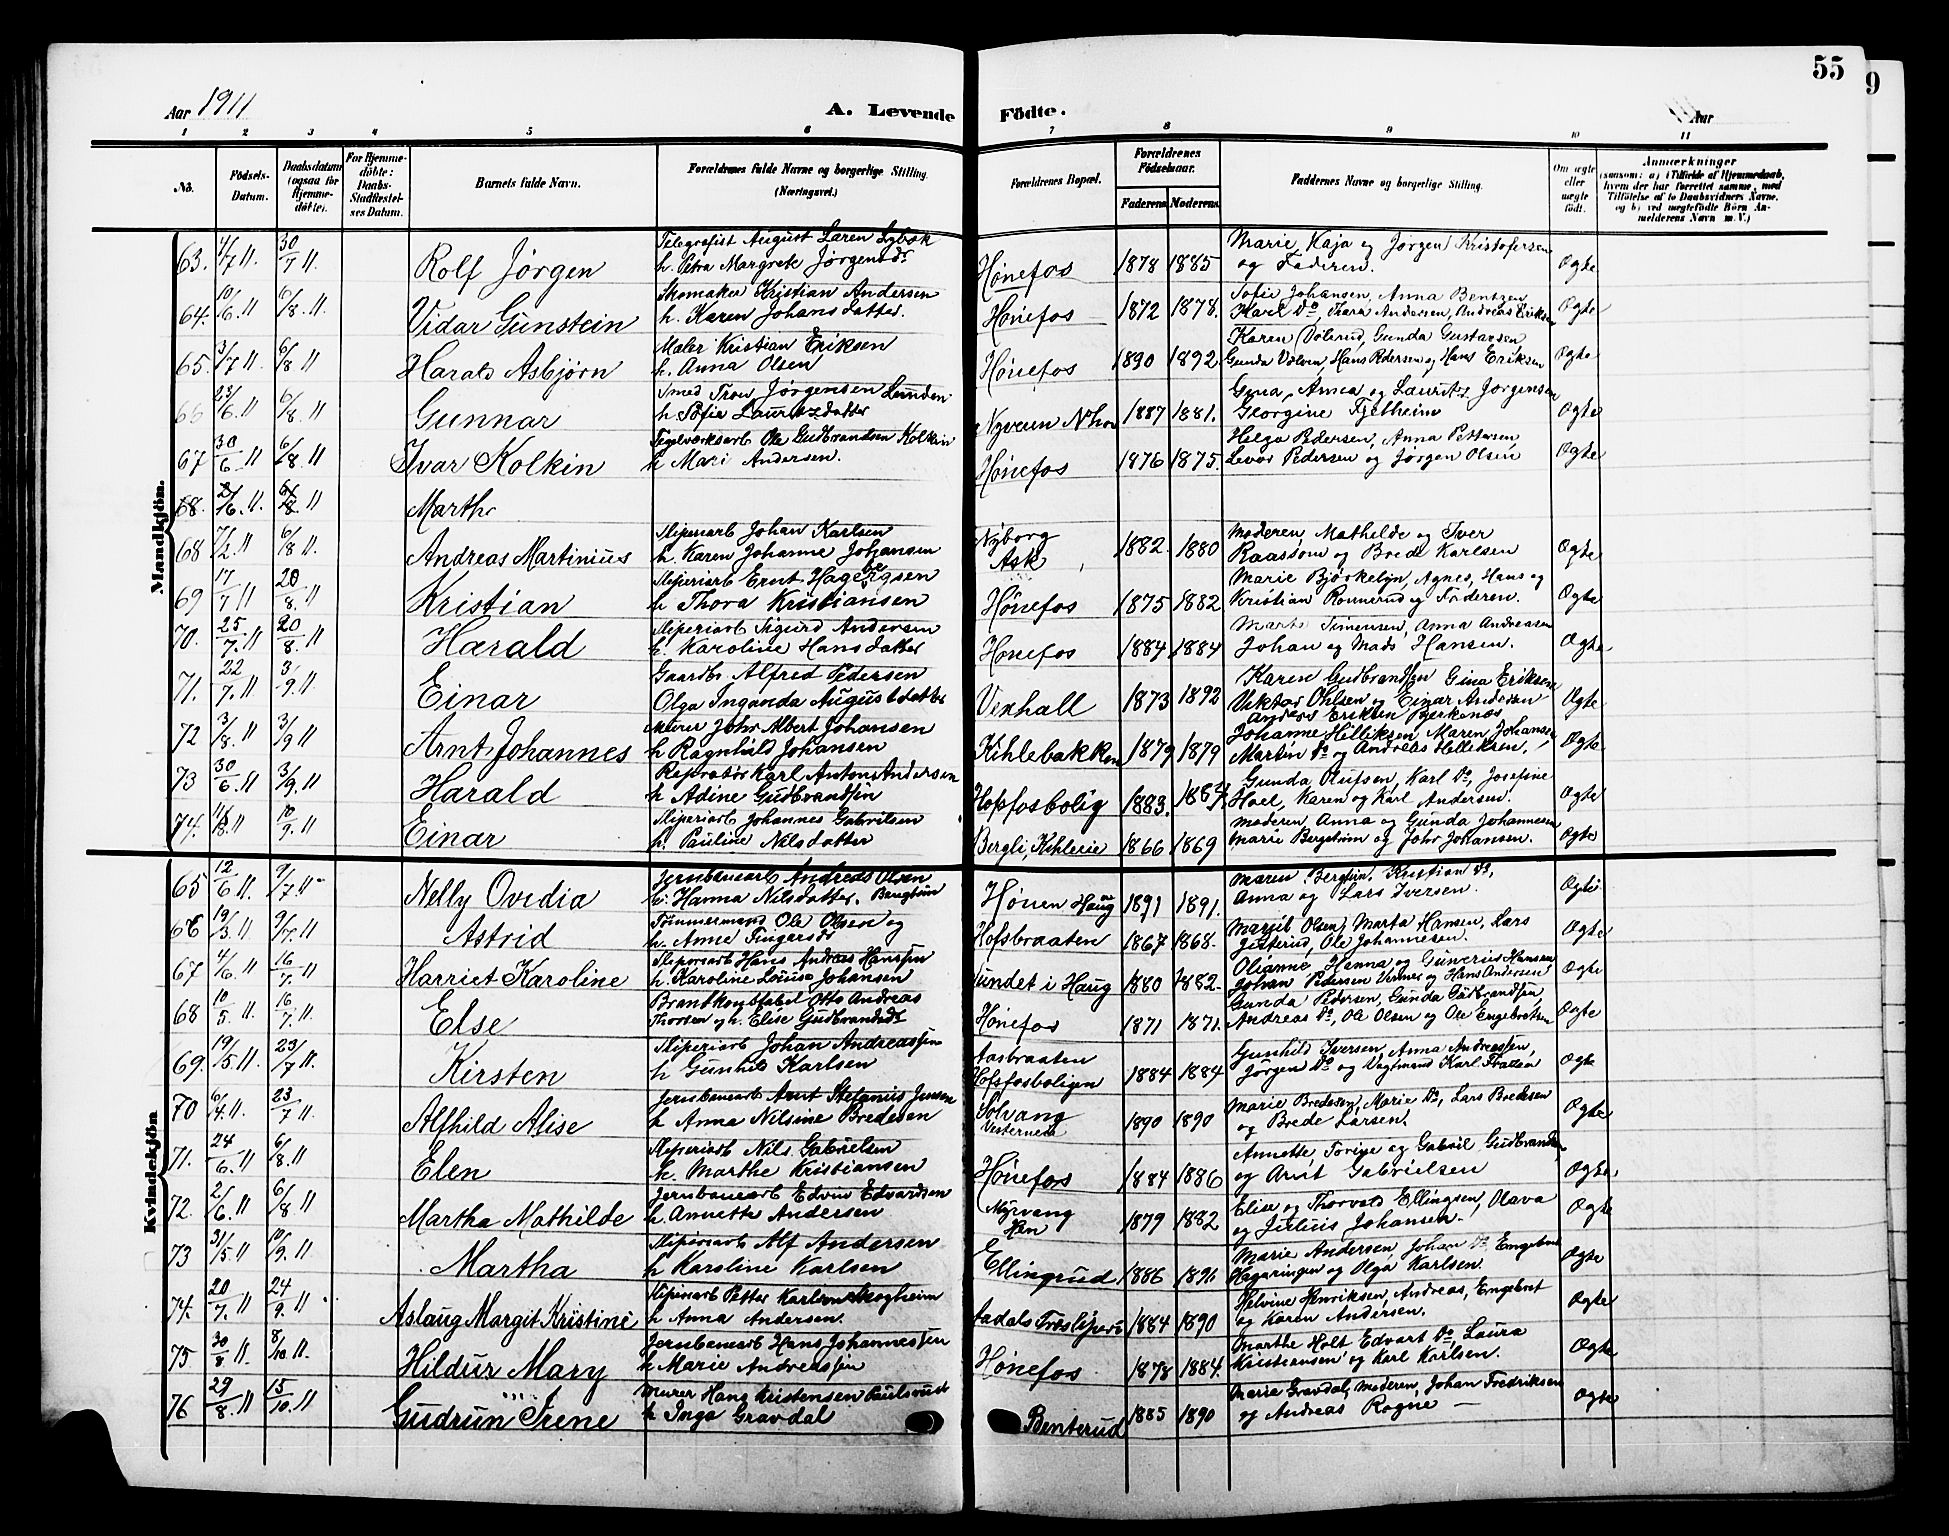 55
9
Aar 1911
A. Levende Födte.
Aar
1 2 3 4 5 6 7 8 9 10 11
No.
Födsels-Datum.
Daabsdatum (ogsaa for Hjemme-döbte).
For Hjemme-döbte: Daabs-Stadfæstel-ses Datum.
Barnets fulde Navn.
Forældrenes fulde Navne og borgerlige Stilling. (Næringsvei.)
Forældrenes Bopæl.
Forældrenes Födselsaar.
Faderens Moderens
Faddernes Navne og borgerlige Stilling.
Om ægte eller uægte födt.
Anmærkninger (saasom: a) i Tilfælde af Hjemmedaab, hvem der har forrettet samme, med Tilföielse af to Daabsvidners Navne, og b) ved uægtefödte Börn An-melderens Navn m. V.)
Mandkjön.
63. 4/7 11. 30/7 11. Rolf Jörgen Telegrafist August Laren Lybæk
h. Petra Margrete Jørgensdr Hönefos 1878 1885 Marie, Kaja og Jørgen Kristofersen
og Faderen. Ægte
64. 10/6 11. 6/8 11. Vidar Gunstein Skomaker Kristian Andersen
h. Karen Johansdatter Hönefos 1872 1878. Sofie Johansen, Anna Bentzen
Karl Do, Thora Andersen, Andreas Eriksen Ægte
65. 3/7 11 6/8 11 Harald Asbjørn Maler Kristian Eriksen
h. Anna Olsen Hönefos 1890 1892 Karen Dölerud, Gunda Gustavsen
Gunda Volven, Hans Pedersen og Hans Eriksen Ægte
66 23/6 11 6/8 11 Gunnar Smed Tron Jørgensen Lunden
h. Sofie Lauritzdatter Nyveien N.hov 1887 1881. Gina, Anna og Laurits Jørgensen
Georgine Fjeldheim Ægte
67 30/6 11 6/8 11 Ivar Kolkin Teglværksarb Ole Gudbrandsen Kolkin
h. Mari Andersen. Hönefos 1876 1875. Helga Pedersen, Anna Pettersen
Levor Pedersen og Jørgen Olsen Ægte
68. 2/6 11. 6/8 11 Martha
68 7/2 11. 6/8 11. Andreas Martinius Sliperiarb Johan Karlsen
h. Karen Johanne Johansen Nyborg
Ask 1882. 1880 Moderen, Mathilde og Iver
Raassom og Brede Karlsen Ægte
69 17/7 11 20/8. 11 Kristian Sliperiarb Ernt Hagbert Egsen
h. Thora Kristiansen Hönefos 1875 1882 Marie Bjørkelyn, Agnes, Hans og
Kristian Ronnerud og Faderen. Ægte
70. 25/7. 11 20/8. 11 Harald Sliperiarb Sigurd Andersen
h. Karoline Hansdatter Hönefos 1884 1884 Marte Simensen, Anna Andreasen
Johan og Mads Hansen. Ægte
71. 22/7. 11 3/9. 11. Einar Gaardbr. Alfred Pedersen
Olga Inganda Augustdatter Vexhall 1873 1892 Karen Gudbrandsen Gina Eriksen
Viktor Ohlsen og Einar Andersen
Anders Eriksen Bjerkenæs Ægte
72 3/8. 11 3/9 11 Arnt Johannes Murer John Albert Johansen
h Ragnhild Johansen Kihlebakken 1879 1879 Johanne Hilliksen, Maren Johansen
Martin Do og Andreas Hilliksen. Ægte
73 30/6. 11 3/9. 11 Harald Reprator Karl Anton Andersen
h Adine Gudbrandsen Hofsfosbolig 1883. 1884 Gunda Olufsen, Karl Do, Josefine
Hoel, Karen og Karl Andersen. Ægte
74. 11/8. 11 10/9. 11 Einar Sliperiarb Johannes Gabrielsen
h. Pauline Nilsdatter Bergli, Kihlerie 1866 1869 Moderen, Anna og Gunda Johannesen
Marie Bergstrøm og John Johansen. Ægte
Kvindekjön
65 12/6 11. 9/7 11. Nelly Ovedia Jernbanearb Andreas Olsen
h. Hanna Nilsdatter. Bergtun Hönen Haug 1891 1891. Maren Bergtun, Kristian Do,
Anna og Lars Iversen. Ægte
66 19/3 11. 9/7. 11 Astrid Tømmermand Ole Olsen og
h. Anne Fingarsdr Hofsbraaten 1867 1868. Marjit Olsen, Marta Hansen, Lars
Jetterud, Ole Johannesen. Ægte
67 4/6 11. 16/7. 11 Harriet Karoline Sliperiarb Hans Andreas Hansen
h. Karoline Louise Johansen Sundet i Haug 1880 1882. Olianne, Hanna og Gunerius Hansen
Johan Pedersen Vermes og Hans Andersen Ægte
68 10/5. 11 16/7. 11 Else Brandkonstabel Otto Andreas
Thorsen og h. Elise Gudbrandsdr Hönefos 1871 1871. Gunda Pedersen, Gunda Gudbrandsen,
Andreas Do, Ole Olsen og Ole Engebretsen Ægte
69. 19/5 11. 23/7 11. Kirsten Sliperiarb Johan Andreassen
h Gunhild Karlsen Aasbraaten
Hofsfosboligen 1884 1884 Gunhild Iversen, Anna Andreassen,
Jørgen Do og Vegtmand Karl Fradén Ægte
70 6/4. 11. 23/7 11. Alfhild Alise Jernbanearb Arnt Stefanus Jensen
h Anna Nilsine Bredesen Solvang
Vesterned 1890 1890 Marie Bredesen, Marie Do, Lars Bredesen
og Brede Larsen. Ægte
71. 24/6. 11 6/8. 11 Elen Sliperiarb Nils Gabrielsen
h. Marthe Kristiansen Hönefos 1884 1886 Annette, Torine og Gabriel Gudbrandsen
og Arnt Gabrielsen Ægte
72. 2/6. 11 6/8 11 Martha Mathilde Jernbanearb Edvin Edvardsen
h. Annette Andersen Myrvang
Hen 1879 1882 Elise og Thorvald Ellingsen, Olava
og Julius Johansen. Ægte
73 31/5 11 10/9. 11. Martha Sliperiarb Alf Andersen
h Karoline Karlsen Ellingrud 1886 1891 Marie Andersen, Johan Do Engebret
Hagaringen og Olga Karlsen. Ægte
74. 20/7. 11 24/9. 11 Aslaug Margit Kristine Sliperiarb Petter Karlsen Skogheim
h Anna Andersen. Aadals Træsliperi 1884 1890 Helvine Henriksen, Andreas, Engebret
og Karen Andersen. Ægte
75 30/8 11. 8/10. 11. Hildur Mary Jernbanearb Hans Johannessen
h Marie Andreassen Hönefos 1878 1884. Marthe Holt Edvart Do, Laura
Kristiansen og Karl Karlsen. Ægte
76 29/8. 11 15/10. 11 Gudrun Irene Murer Hans Kristensen Paulsrud
h Inga Gravdal Benterud 1885 1890 Marie Gravdal, Moderen, Johan Fredriksen
og Andreas Rogne — Ægte